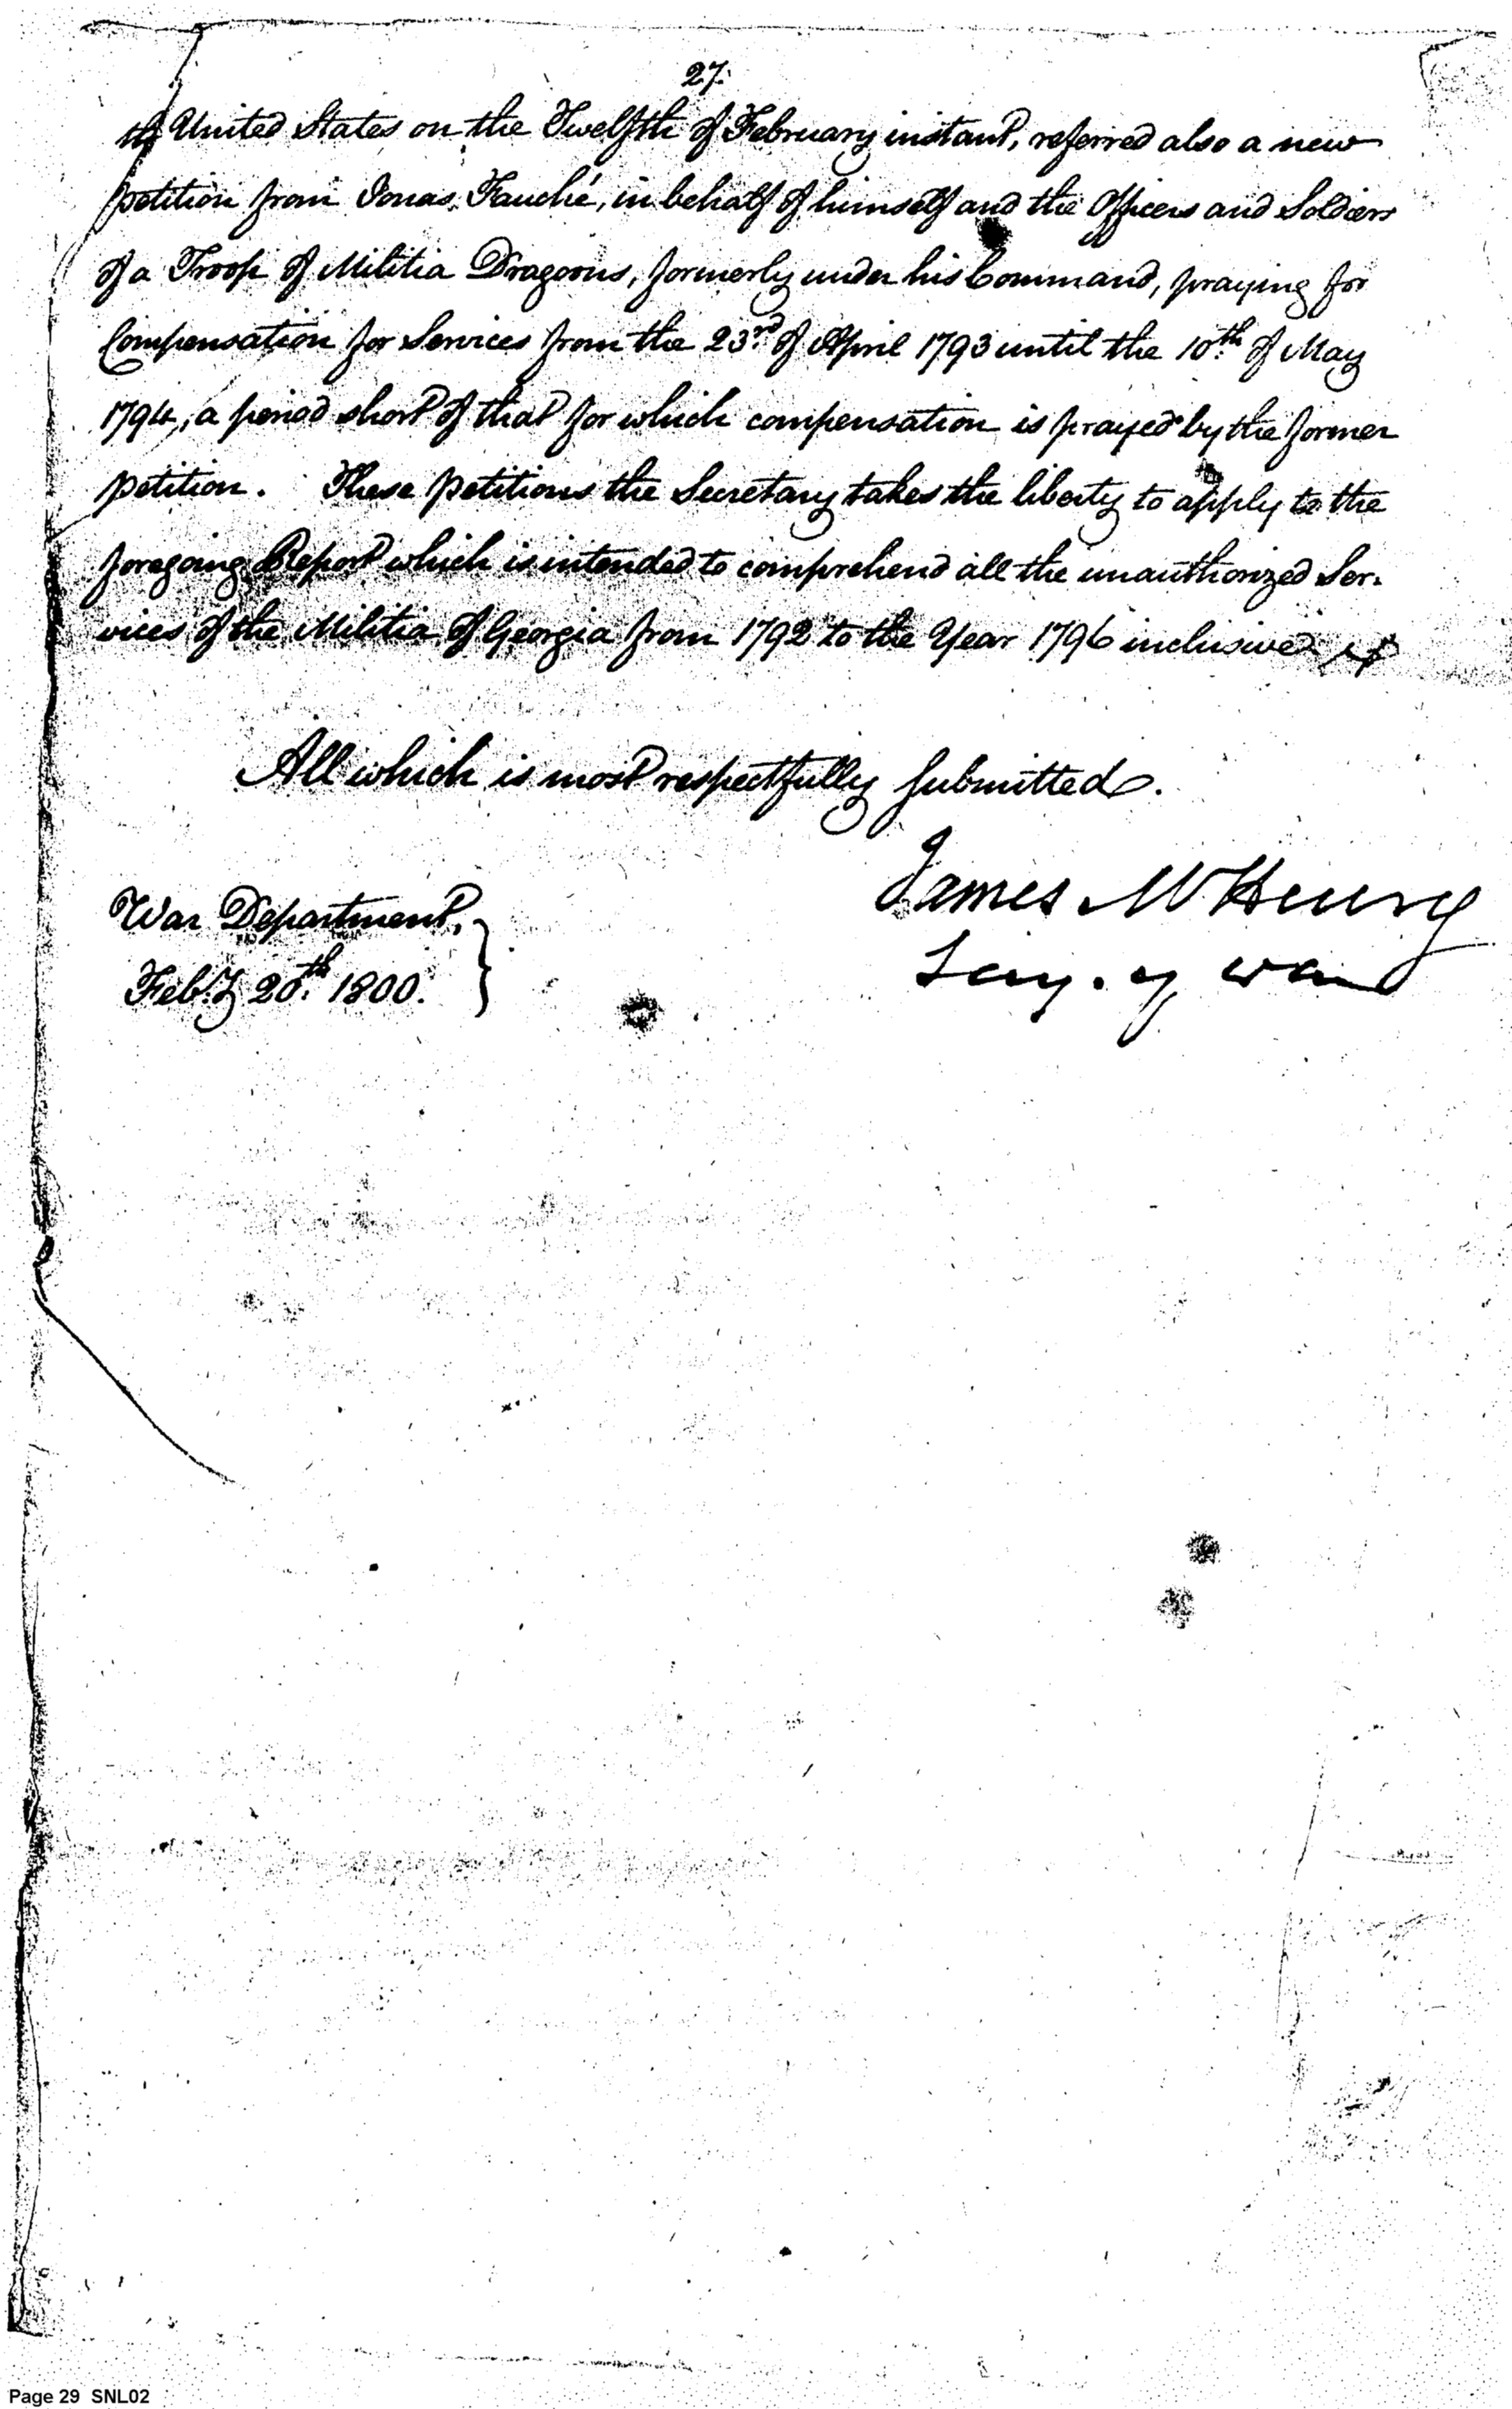 27.
the United States on the Twelfth of February instant, referred also a new
petition from Jonas Fauché, in behalf of himself and the Officers and Soldiers
of a Troop of Militia Dragoons, formerly under his Command, praying for
Compensation for Services from the 23rd of April 1793 until the 10th of May
1794, a period short of that for which compensation is prayed by the former
petition. These petitions the Secretary takes the liberty to apply to the
foregoing Report which is intended to comprehend all the unauthorized Ser-
vices of the Militia of Georgia from 1792 to the Year 1796 inclusive
All which is most respectfully submitted.
James McHenry
Secy. of war
War Department,
Feby. 20th 1800.
Page 29 SNL02